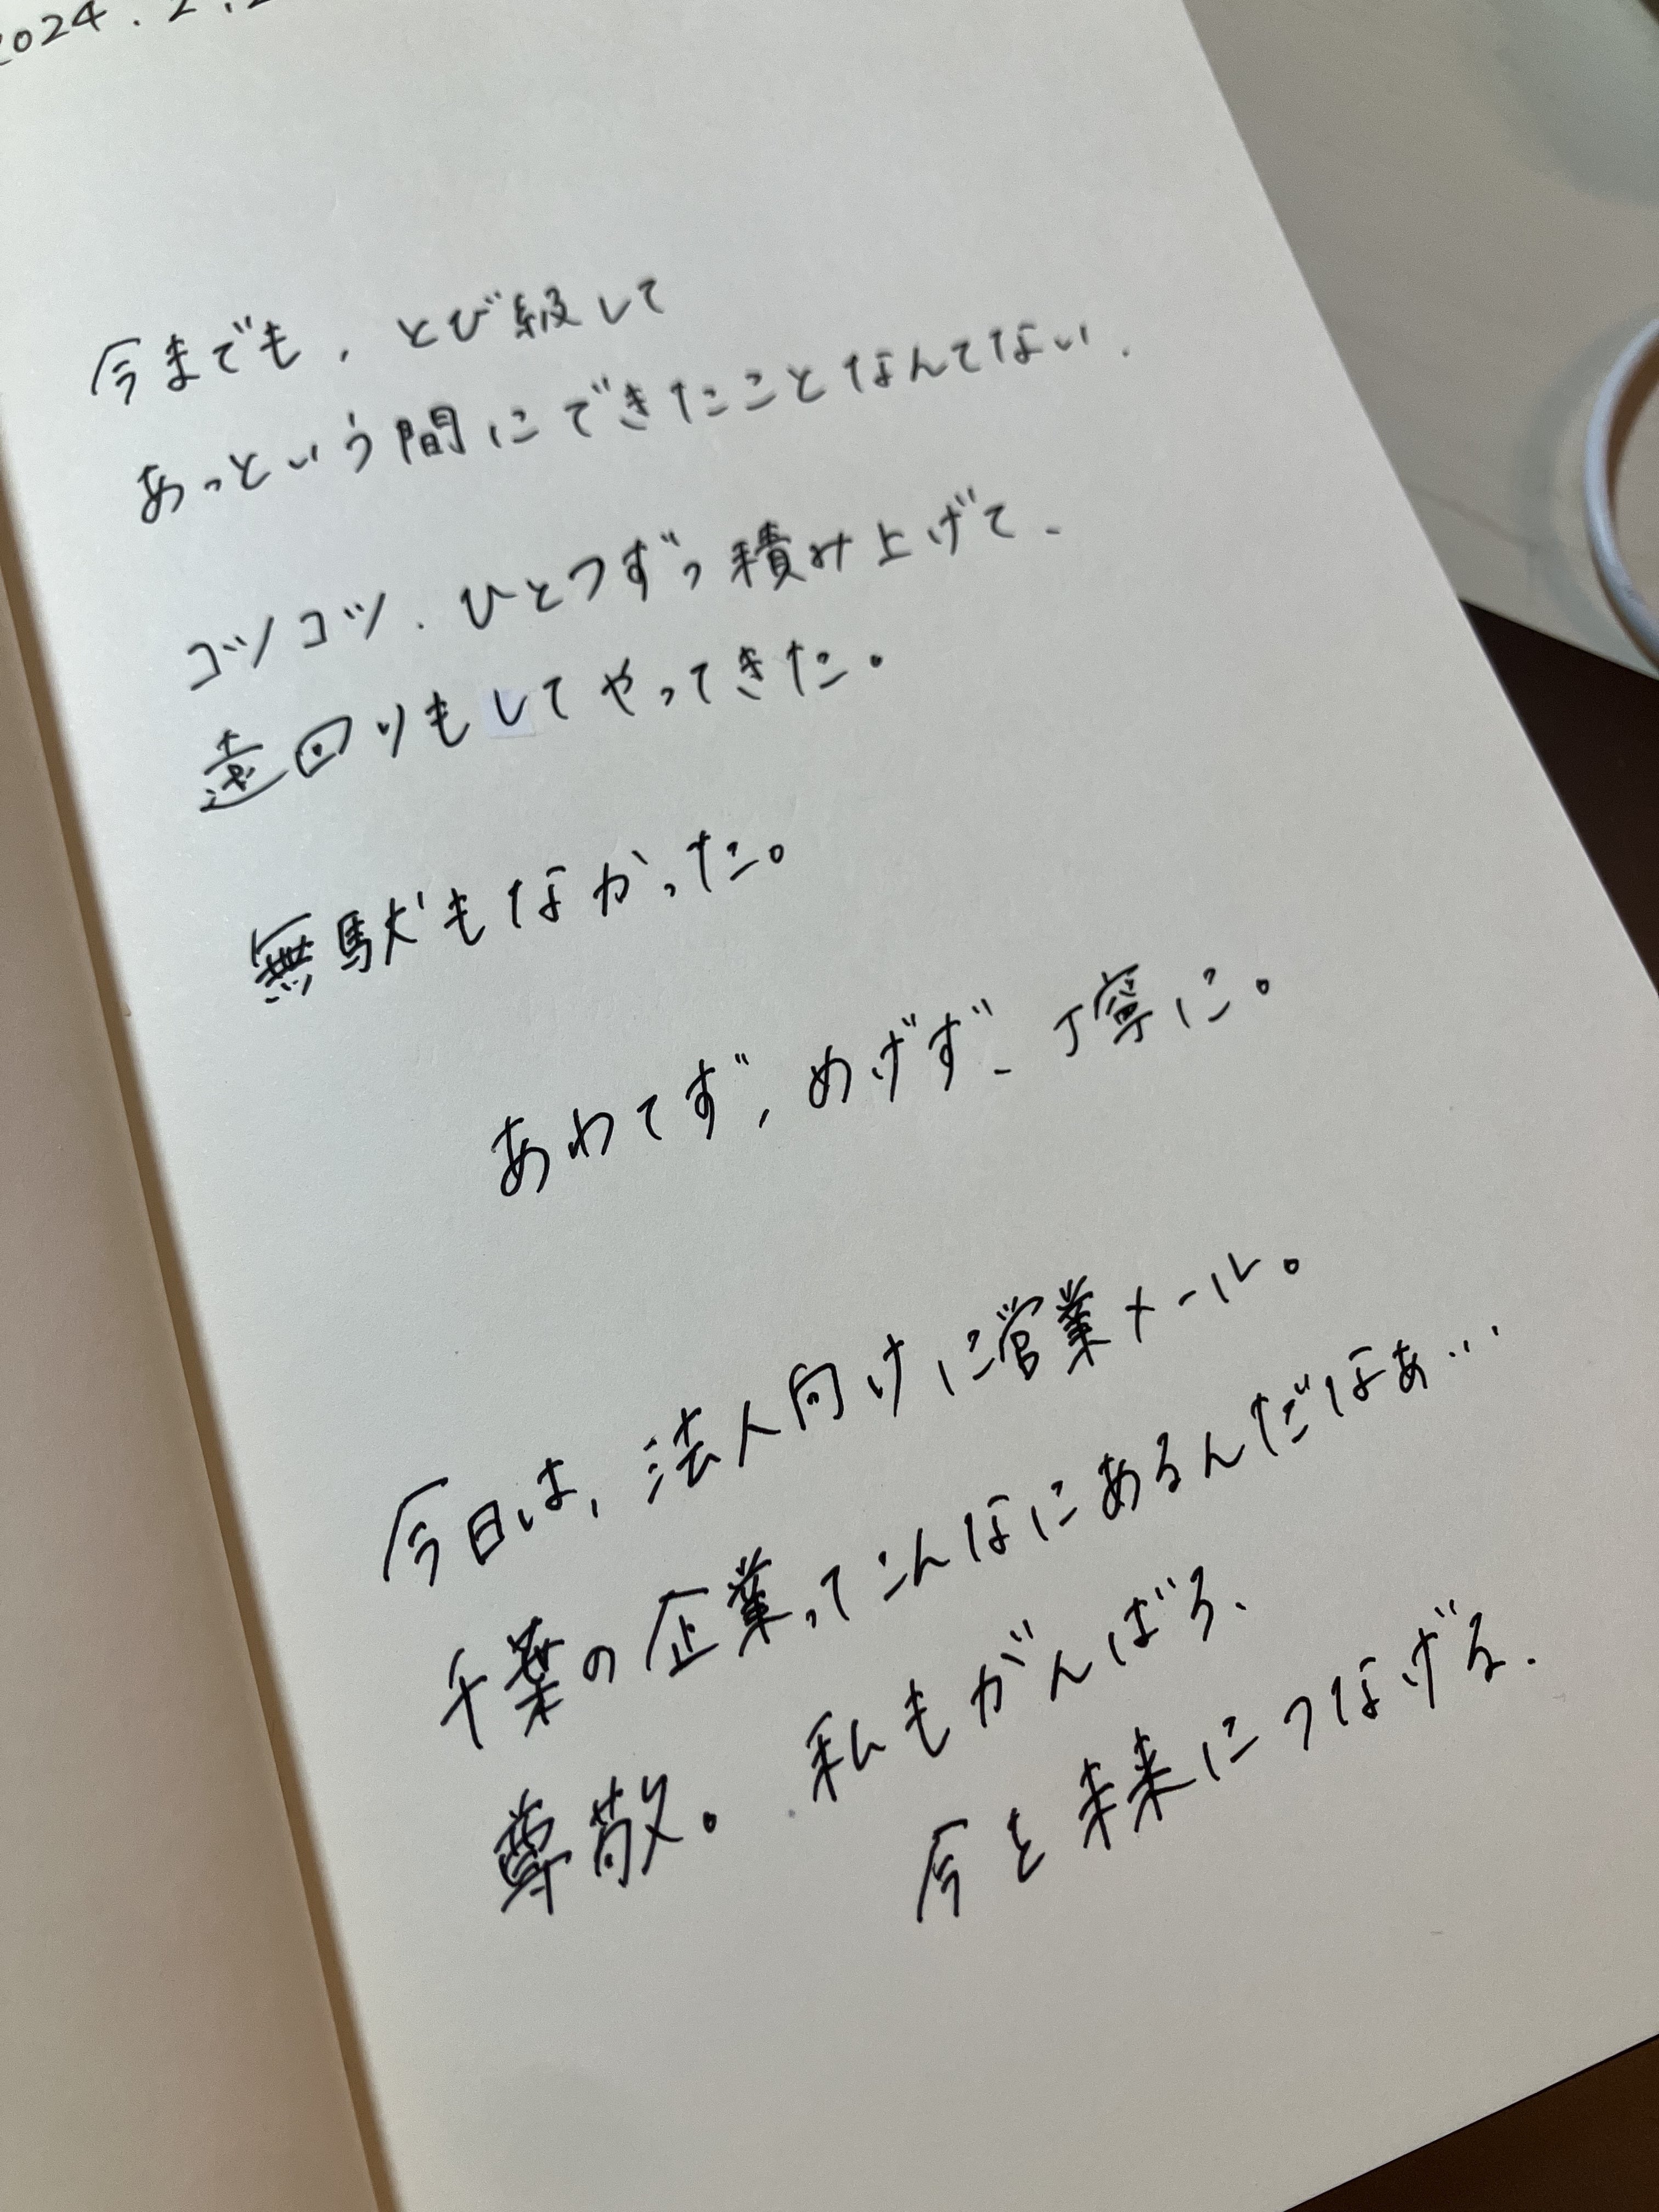 2024.2.2
今までも、とび級して
あっという間にできたことなんてない.
コツコツ.ひとつずつ積み上げて、
遠回りもしてやってきた。
無駄もなかった。
あわてず,めげず、丁寧に。
今日は,法人向けに営業メール。
千葉の企業ってこんなにあるんだなぁ…
尊敬。私もがんばろ、
今を未来につなげる.